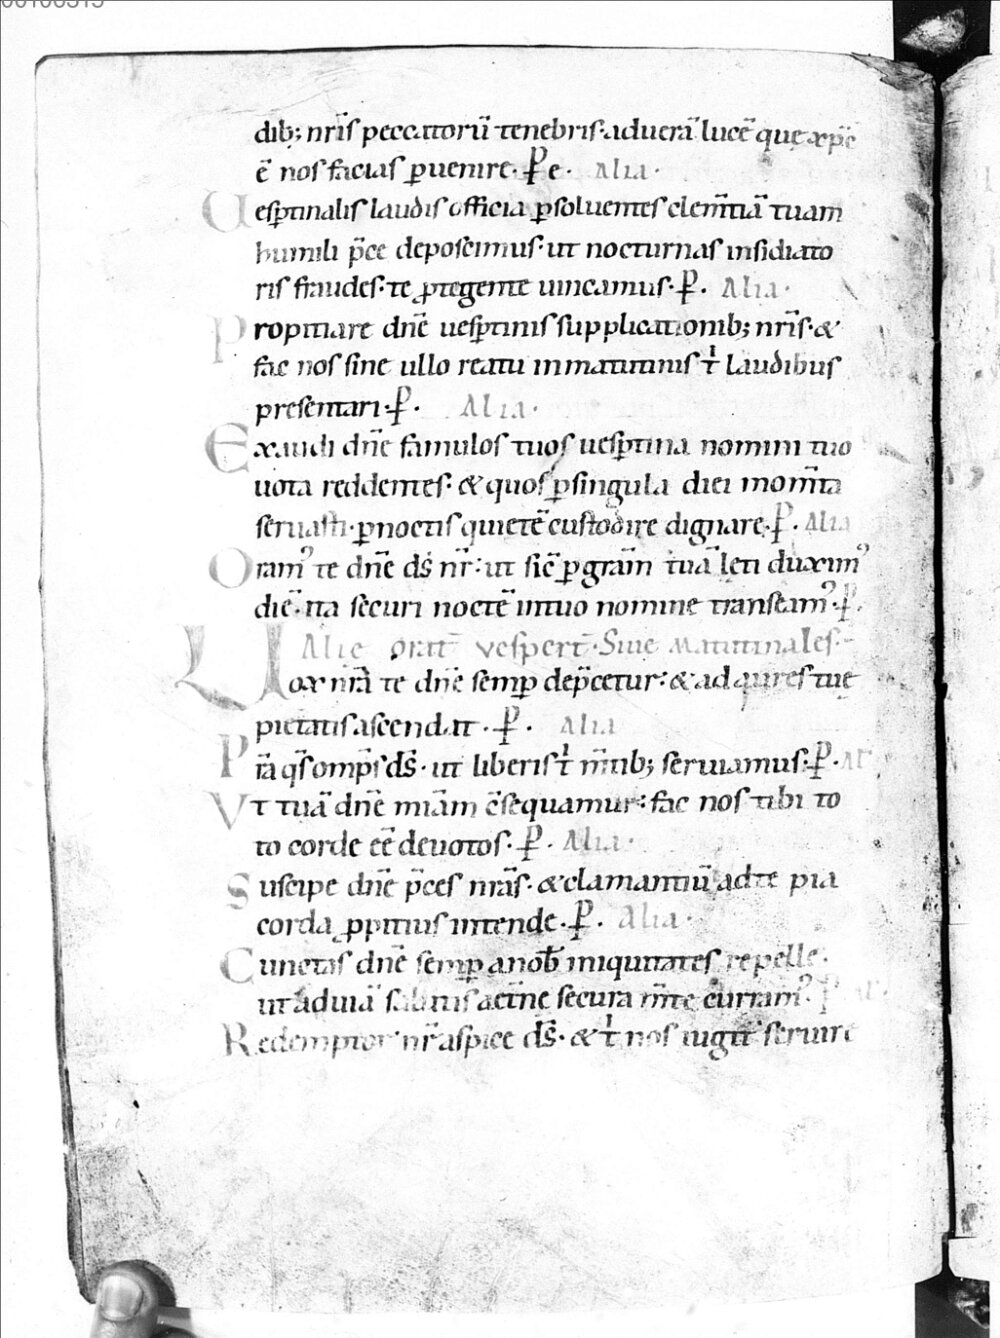 dib; nr̄is peccatorū tenebris· aduerā lucē quę xp̄c
ē nos facias ꝑuenire· P̶e· Alia·
Uesꝑtinalis laudis officia ꝑsoluentes clem̄tiā tuam
humili p̄ce deposcimus· ut nocturnas insidiato
ris fraudes· te ꝓtegente uincamus· P̶· Alia·
Propitiare dn̄e uesꝑtinis supplicationib; nr̄is· &
fac nos sine ullo reatu in matutinis t̄ laudibus
presentari· P̶· Alia·
Exaudi dn̄e famulos tuos uesꝑtina nomini tuo
uota reddentes· & quos ꝑ singula diei mom̄ta
seruasti· ꝑ noctis quietē custodire dignare· P̶· Alia
Oramꝰ te dn̄e ds̄ nr̄· ut sic̄ ꝑ gr̄am tuā lęti duximꝰ
diē· ita securi noctē in tuo nomine transeamꝰ· P̶·
Alie orat̄ vespert̄· Siue Matutinales·
Uox nr̄a te dn̄e semꝑ dep̄cetur· & ad aures tuę
pietatis ascendat· P̶· Alia
Pr̄a q̄s omp̄s ds̄· ut liberis t̄ m̄tib; seruiamus· P̶· Al
Vt tuā dn̄e miām c̄sequamur· fac nos tibi to
to corde eē deuotos· P̶· Alia·
Suscipe dn̄e p̄ces nr̄as· & clamantiū ad te pia
corda ꝓpitius intende· P̶· Alia·
Cunctas dn̄e semꝑ a nob̄ iniquitates repelle·
ut ad uiā salutis aet̄ne secura m̄te curramꝰ· P̶ Al·
Redemptor nr̄ aspice ds̄· & t̄ nos iugit̄ seruire